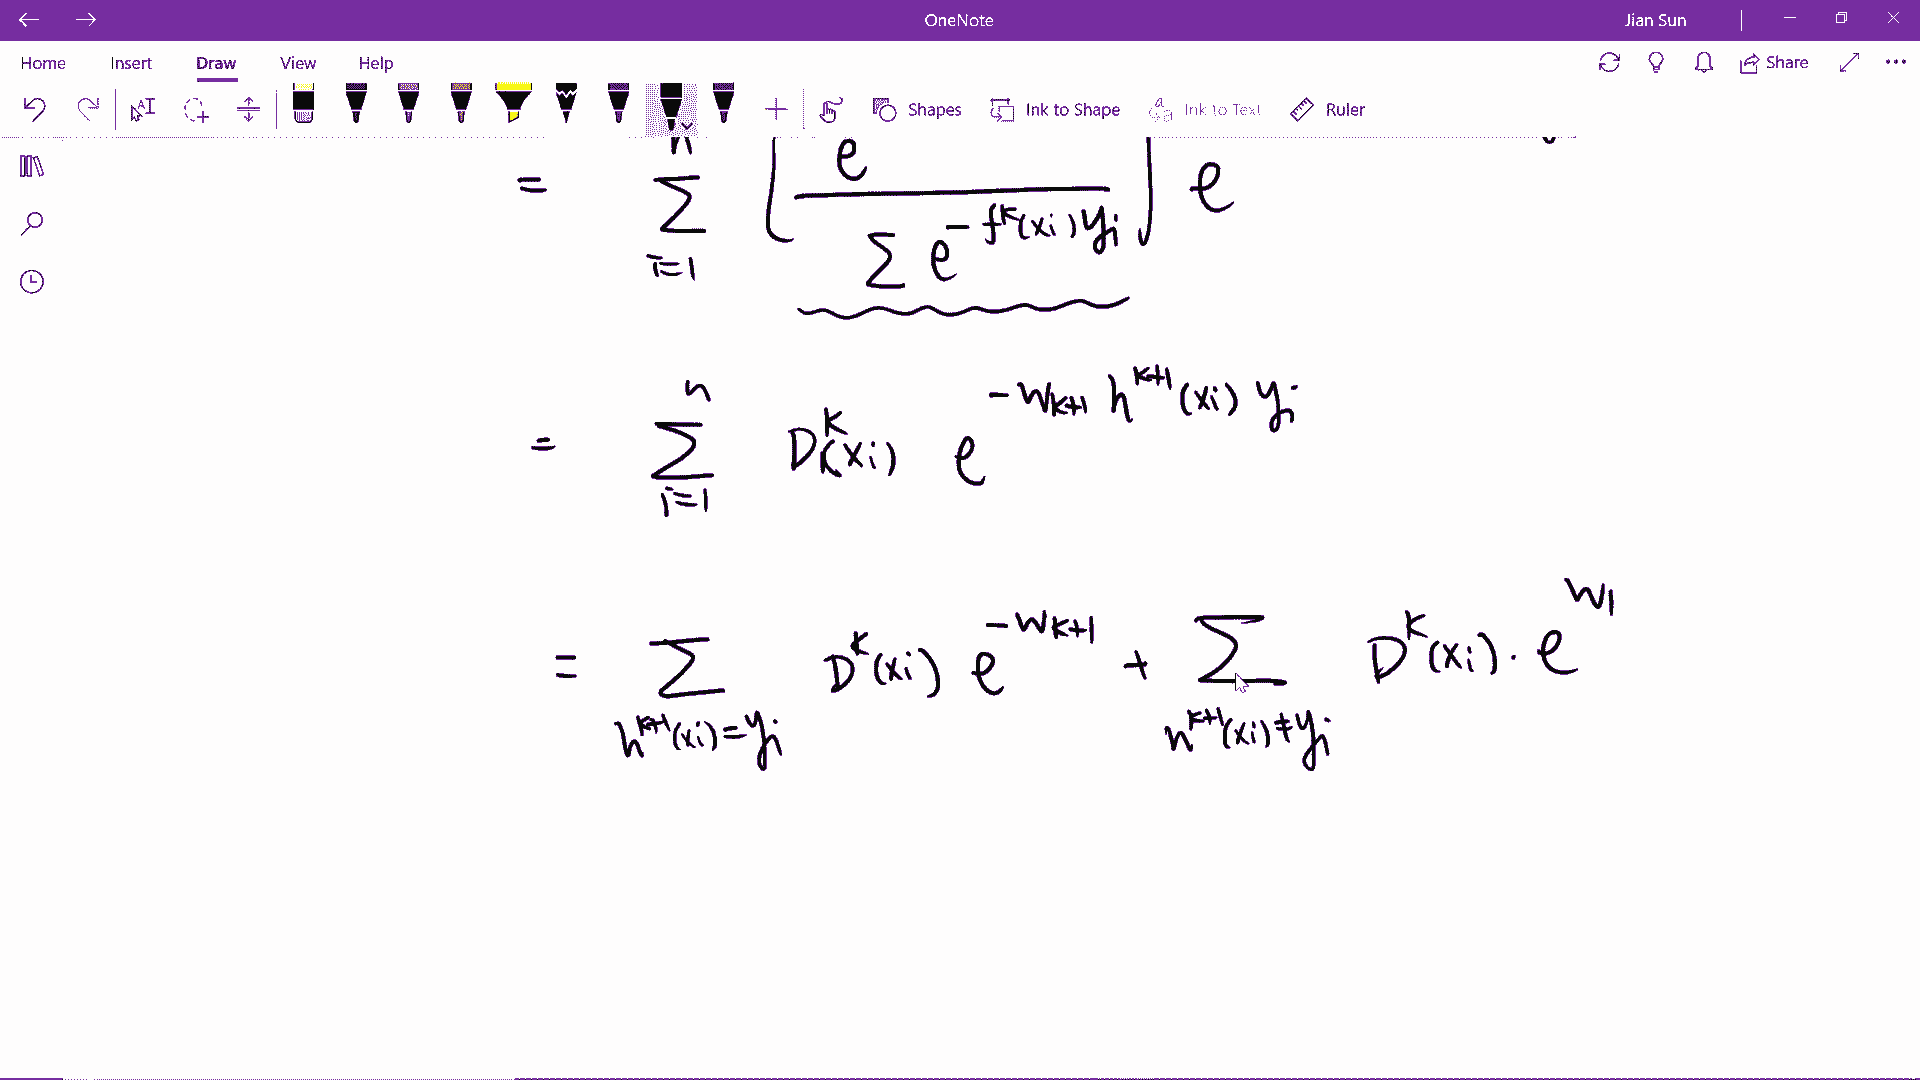 OneNote
Jian Sun
Home Insert Draw View Help
Share
Shapes Ink to Shape Ink to Text Ruler
= n ∑ i=1 [ e / ∑ e^{-f^k(xi) yi} ] e
= n ∑ i=1 D^k(xi) e^{-w_{k+1} h^{k+1}(xi) yi}
= ∑ h^{k+1}(xi)=yi D^k(xi) e^{-w_{k+1}} + ∑ h^{k+1}(xi)≠yi D^k(xi) · e^{w1}